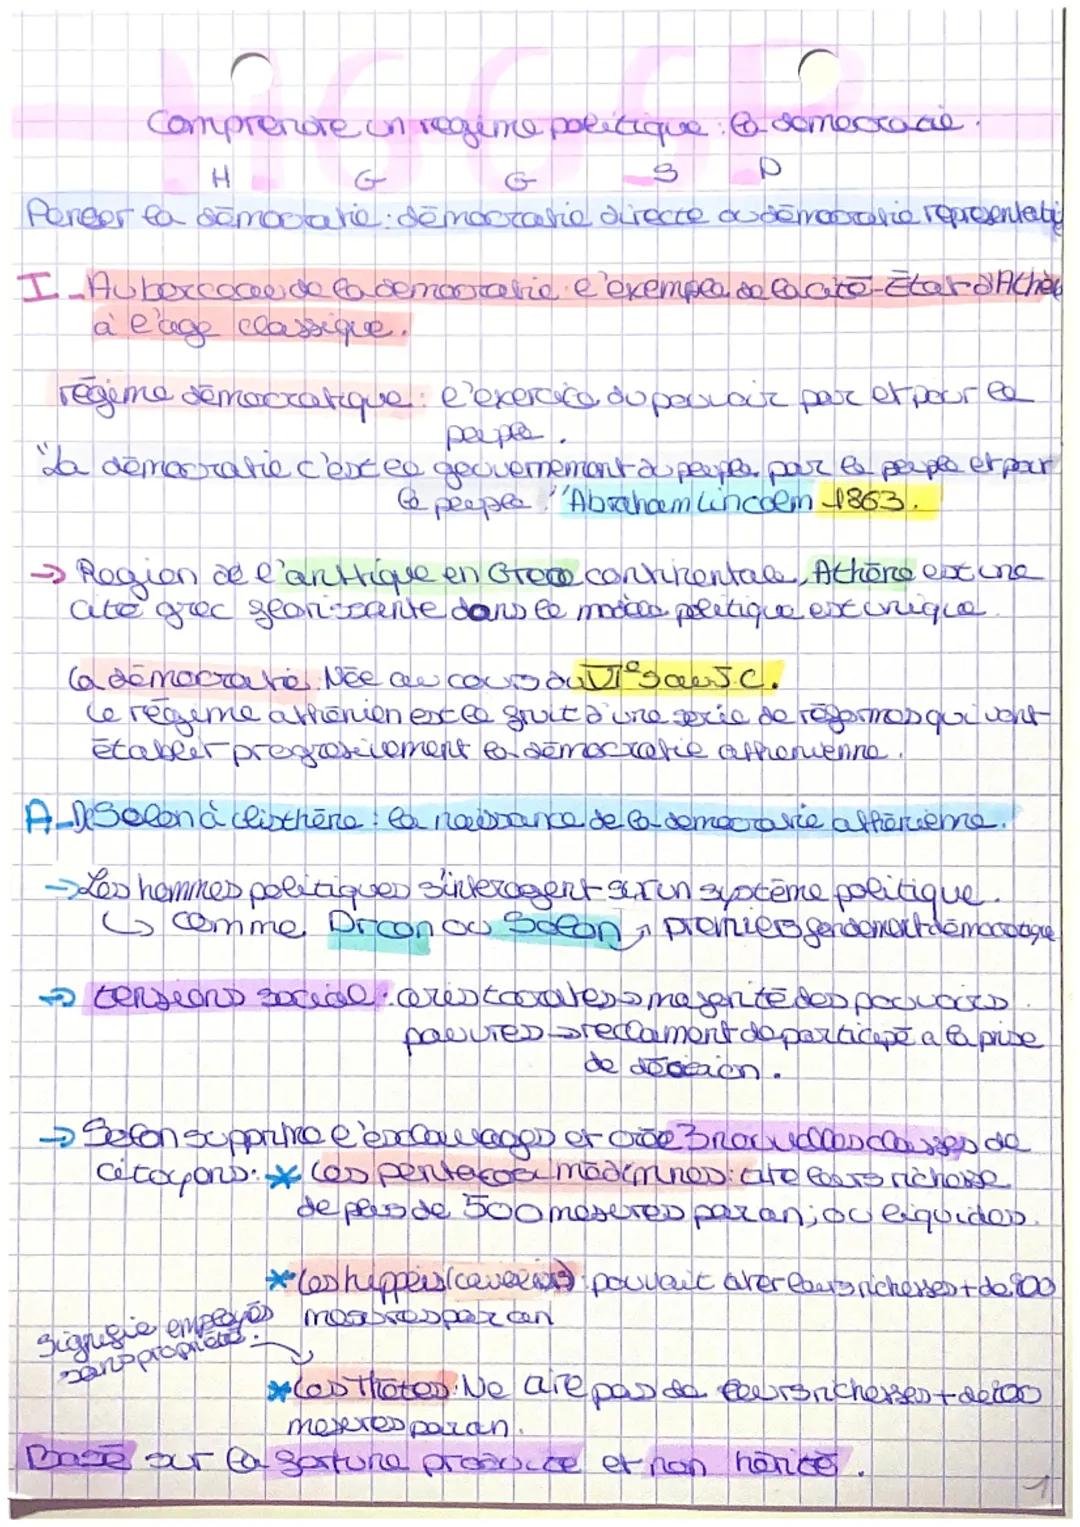 HGGSP
Comprendre un régime politique : la démocratie.
H G G S P
Penser la démocratie : démocratie directe ou démocratie représentati
I - Au berceau de la démocratie : l'exemple de la cité-État d'Athè
à l'age classique.
régime démocratique : l'exercice du pouvoir par et pour le
peuple.
"La démocratie c'est le gouvernement du peuple, par le peuple et pour
le peuple" Abraham Lincoln 1863.
→ Région de l'antiique en Grece continentale, Athène est une
cité grec florissante dans le modèle politique est unique.
la démocratie : Née au cours du VIe s av J.C.
le régime athénien est le fruit d'une serie de réformes qui vont
établir progressivement la démocratie athenienne.
A - De Solon à clisthène : la naissance de la démocratie athénienne.
→ Les hommes politiques s'interogent sur un système politique.
↳ comme Dracon ou Solon, premiers fondement démocratique
→ tensions social : aristocrates → majorité des pouvoirs.
pauvres → reclament de participé a la prise
de décision.
→ Solon supprime l'esclavages et crée 3 nouvelles classes de
citoyens : * Les pentacosiomédimnes : tire leurs richesse
de plus de 500 mesures par an, ou liquides.
* Les hippeis (cavaliers) : pouvait tirer leurs richesses + de 300
mesures par an
signifie employés
sans propriété.
* Les Thètes : Ne tire pas de leurs richesses + de 200
mesures par an.
Basé sur la fortune produite et non hérité.
1